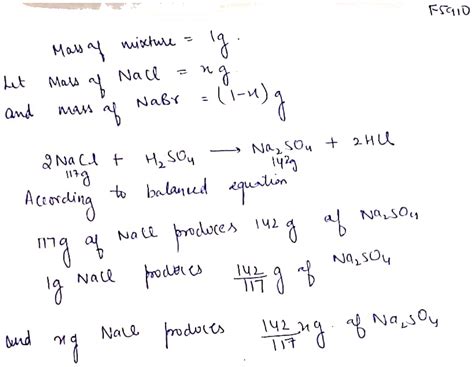 F5910
Mass of mixture = 1g.
Let Mass of NaCl = x g
and mass of NaBr = (1-x) g
2NaCl + H₂SO₄ ⟶ Na₂SO₄ + 2HCl
117g 142g
According to balanced equation
117g of NaCl produces 142 g of Na₂SO₄
1g NaCl produces 142/117 g of Na₂SO₄
and xg NaCl produces 142/117 xg. of Na₂SO₄